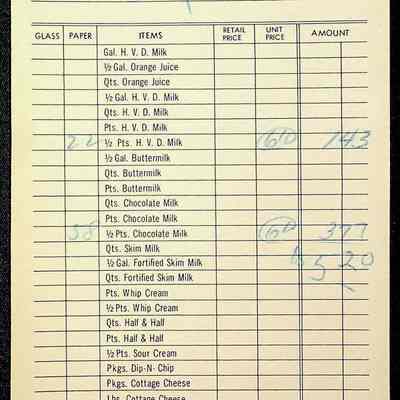 GLASS PAPER ITEMS RETAIL PRICE UNIT PRICE AMOUNT
Gal. H. V. D. Milk
½ Gal. Orange Juice
Qts. Orange Juice
½ Gal. H. V. D. Milk
Qts. H. V. D. Milk
Pts. H. V. D. Milk
22 ½ Pts. H. V. D. Milk 143
½ Gal. Buttermilk
Qts. Buttermilk
Pts. Buttermilk
Qts. Chocolate Milk
Pts. Chocolate Milk
58 ½ Pts. Chocolate Milk 377
Qts. Skim Milk
½ Gal. Fortified Skim Milk 5 20
Qts. Fortified Skim Milk
Pts. Whip Cream
½ Pts. Whip Cream
Qts. Half & Half
Pts. Half & Half
½ Pts. Sour Cream
Pkgs. Dip-N- Chip
Pkgs. Cottage Cheese
Lbs. Cottage Cheese